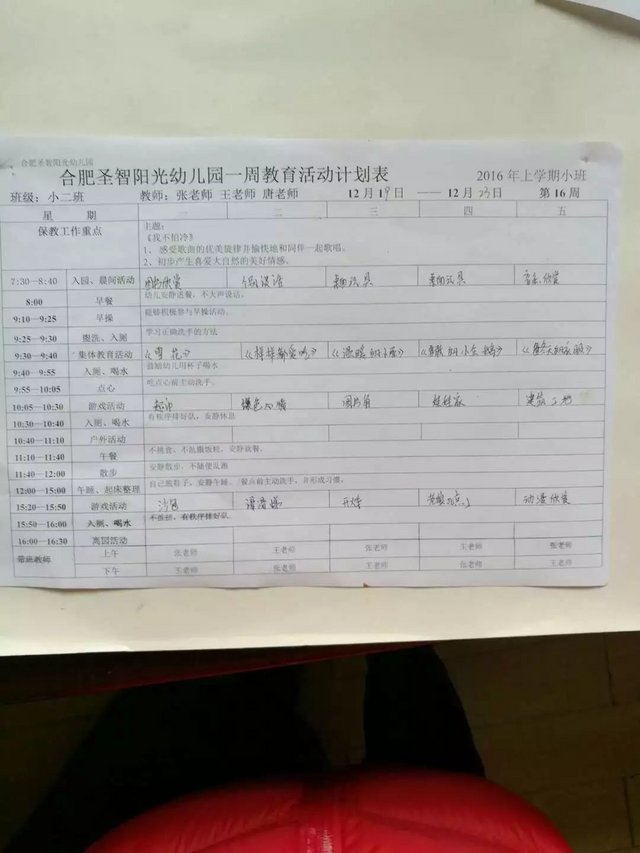 合肥圣智阳光幼儿园
合肥圣智阳光幼儿园一周教育活动计划表 2016 年上学期小班
班级：小二班 教师：张老师 王老师 唐老师 12 月 19 日 —— 12 月 23 日 第 16 周
星 期 一 二 三 四 五
保教工作重点 主题：
《我不怕冷》
1、感受歌曲的优美旋律并愉快地和同伴一起歌唱。
2、初步产生喜爱大自然的美好情感。
7:30—8:40 入园、晨间活动 图书欣赏 桌面玩具 桌面玩具 音乐欣赏
8:00 早餐 幼儿安静进餐，不大声说话。
9:10—9:25 早操 能够积极参与早操活动。
9:25—9:30 盥洗、入厕 学习正确洗手的方法
9:30—9:40 集体教育活动 《雪花》 《样样都爱吃》
9:40—9:55 入厕、喝水 鼓励幼儿用杯子喝水
9:55—10:05 点心 吃点心前主动洗手。
10:05—10:30 游戏活动 娃娃家 建筑工地
10:30—10:40 入厕、喝水 有秩序排好队，安静休息
10:40—11:10 户外活动
11:10—11:40 午餐 不挑食、不乱撒饭粒，安静就餐。
11:40—12:00 散步 安静散步，不随便乱跑
12:00—15:00 午睡、起床整理 自己脱鞋子，安静午睡。餐点前主动洗手，并形成习惯。
15:20—15:50 游戏活动 开火车 动漫欣赏
15:50—16:00 入厕、喝水 不推挤，有秩序排好队。
16:00—16:30 离园活动
带班教师 上午 张老师 王老师 张老师 王老师 张老师
下午 王老师 张老师 王老师 张老师 王老师